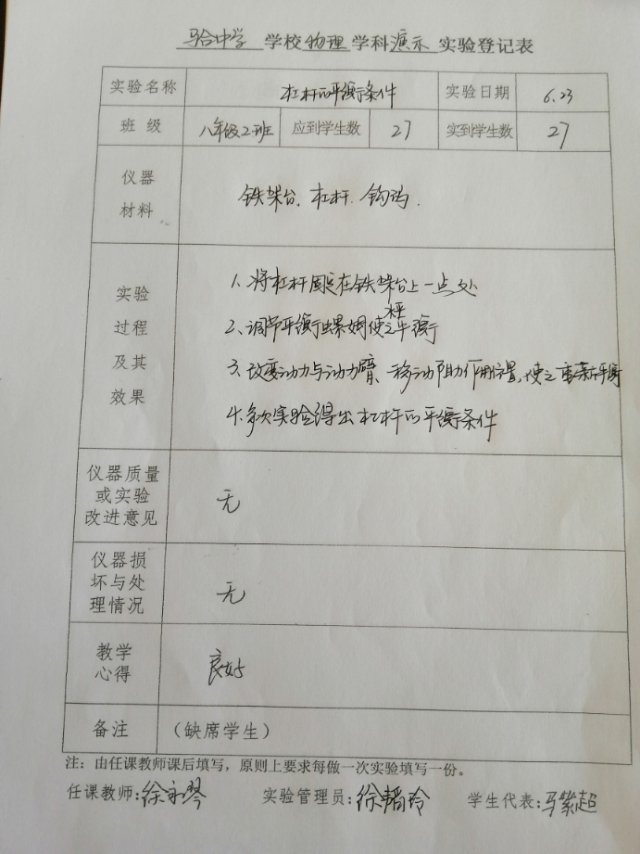 马合中学 学校 物理 学科 演示 实验登记表
实验名称 杠杆的平衡条件 实验日期 6.23
班级 八年级2班 应到学生数 27 实到学生数 27
仪器
材料
铁架台、杠杆、钩码.
实验
过程
及其
效果
1、将杠杆固定在铁架台上一点处
2、调节平衡螺姆使之水平平衡
3、改变动力与动力臂、移动阻力作用位置,使之重新平衡
4、多次实验得出杠杆的平衡条件
仪器质量
或实验
改进意见
无
仪器损
坏与处
理情况
无
教学
心得
良好
备注 (缺席学生)
注:由任课教师课后填写,原则上要求每做一次实验填写一份。
任课教师:徐永琴 实验管理员:徐玲 学生代表:马紫超